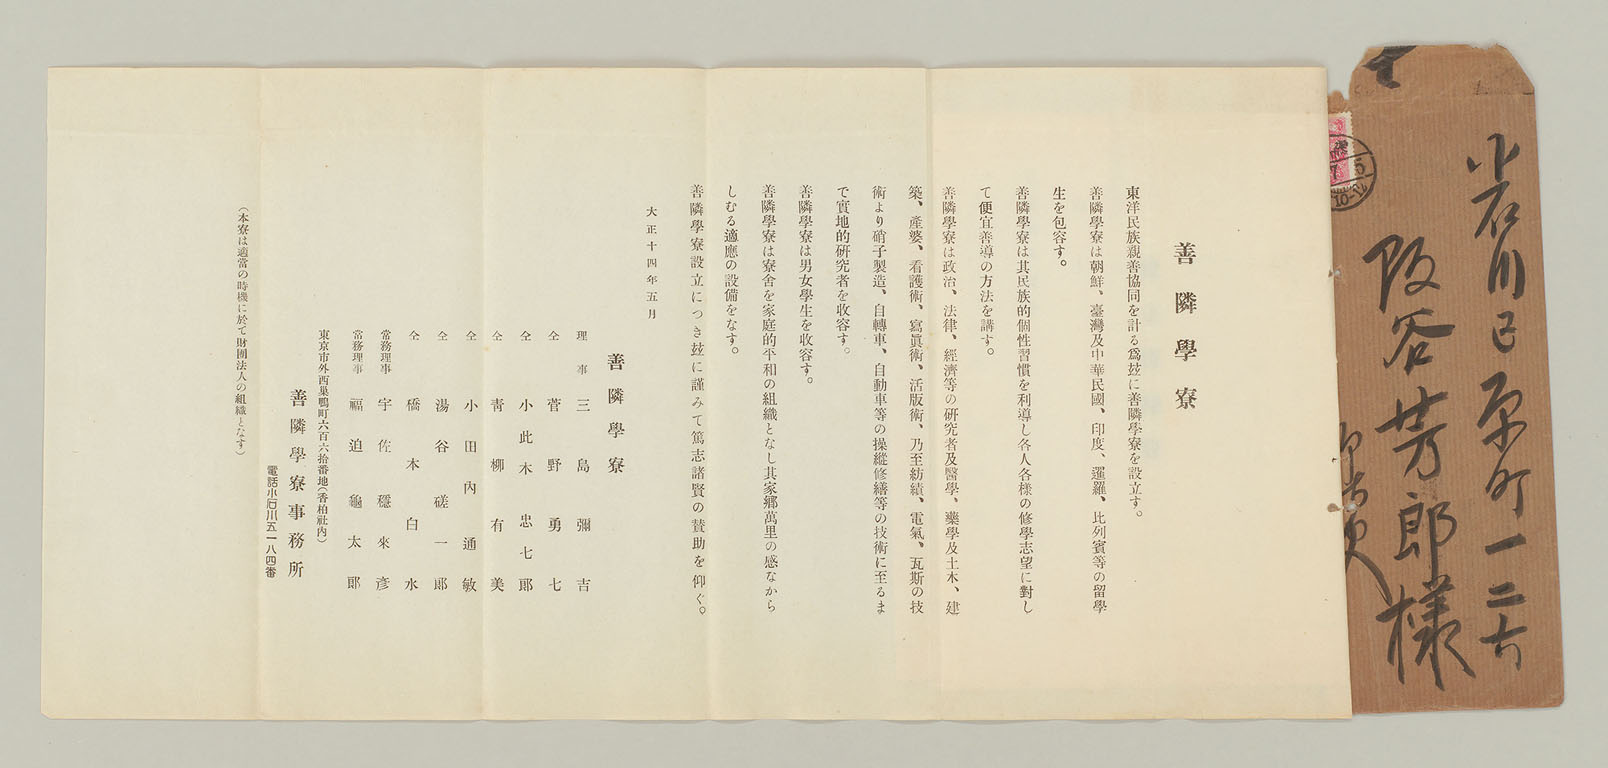 小石川区原町一二六
阪谷芳郎様
善隣學寮
東洋民族親善協同を計る爲玆に善隣學寮を設立す。
善隣學寮は朝鮮、臺灣及中華民國、印度、暹羅、比列賓等の留學
生を包容す。
善隣學寮は其民族的個性習慣を利導し各人各樣の修學志望に對し
て便宜善導の方法を講す。
善隣學寮は政治、法律、經濟等の研究者及醫學、藥學及土木、建
築、產婆、看護術、寫眞術、活版術、乃至紡績、電氣、瓦斯の技
術より硝子製造、自轉車、自動車等の操縱修繕等の技術に至るま
で實地的研究者を收容す。
善隣學寮は男女學生を收容す。
善隣學寮は寮舍を家庭的平和の組織となし其家鄕萬里の感なから
しむる適應の設備をなす。
善隣學寮設立につき玆に謹みて篤志諸賢の賛助を仰ぐ。
大正十四年五月
善隣學寮
理事 三島彌吉
仝 菅野勇七
仝 小此木忠七郎
仝 靑柳有美
仝 小田內通敏
仝 湯谷磋一郎
仝 橋本白水
常務理事 宇佐穩來彥
常務理事 福迫龜太郎
東京市外西巢鴨町六百六拾番地(香柏社內)
善隣學寮事務所
電話小石川五一八四番
(本寮は適當の時機に於て財團法人の組織となす)